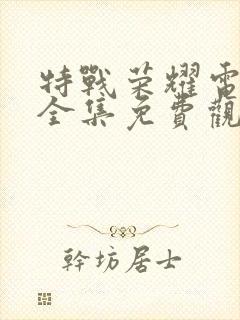 特戰荣耀電
全集免費觀
幹坊居士